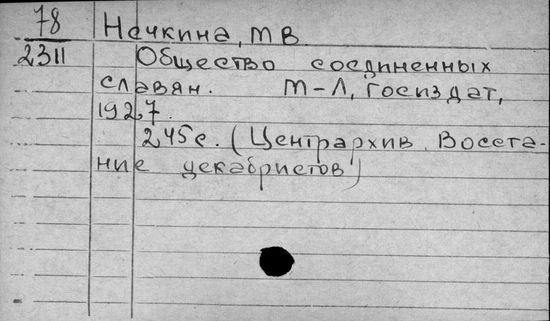 78 Нечкина, М В
2311 Общество соединенных
славян. М-Л, Госиздат,
1927.
245с. (Центрархив. Восста-
ние декабристов)